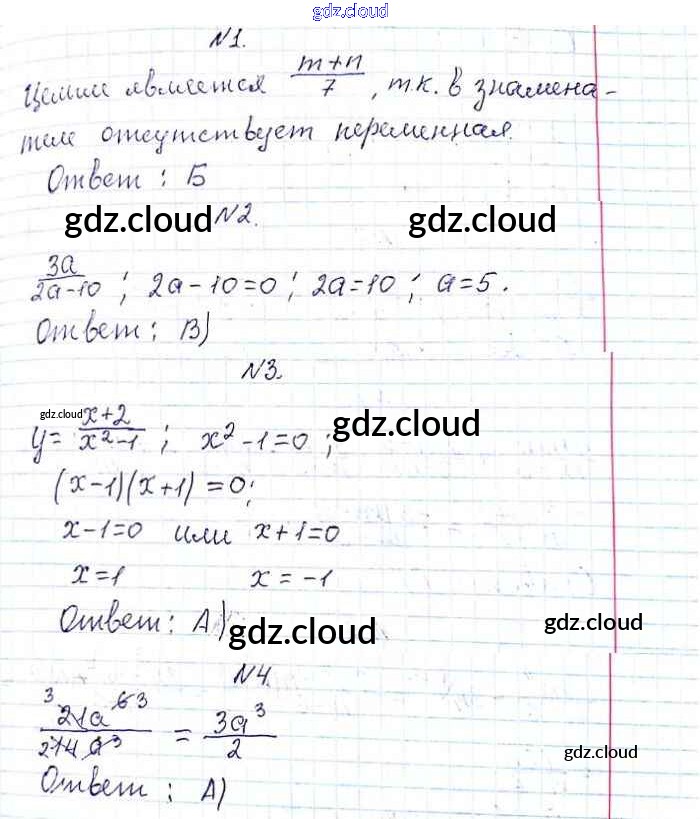 gdz.cloud
N1.
Целым является m+n/7, т.к. в знамена-
теле отсутствует переменная.
Ответ: Б
gdz.cloud N2. gdz.cloud
3a/2a-10; 2a-10=0; 2a=10; a=5.
Ответ: В)
N3.
gdz.cloud
y= x+2/x²-1; x²-1=0; gdz.cloud
(x-1)(x+1)=0;
x-1=0 или x+1=0
x=1 x=-1
Ответ: А) gdz.cloud gdz.cloud
N4.
3 21a⁶ 3/2 14 a³ = 3a³/2
gdz.cloud
Ответ: А)